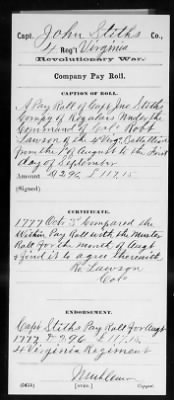 Capt. John Stiths Co.,
4 Reg't Virginia
Revolutionary War.
Company Pay Roll.
CAPTION OF ROLL.
A Pay Roll of Capt Jno Stiths
Compy of Regulars Under the
Command of Colo Robt
Lawson of the 4 Virga Battalion
from the 1st of August to the First
day of September
Amount $296 £117.15
(Signed)
CERTIFICATE.
1777 Octr 3d Compared the
Within Pay Roll with the Muster
Roll for the month of Augt
& find it to agree therewith
Ro Lawson
Colo
ENDORSEMENT.
Capt Stiths Pay Roll for Augt
1777 $296 £117.15
4 Virginia Regiment
Copyist.